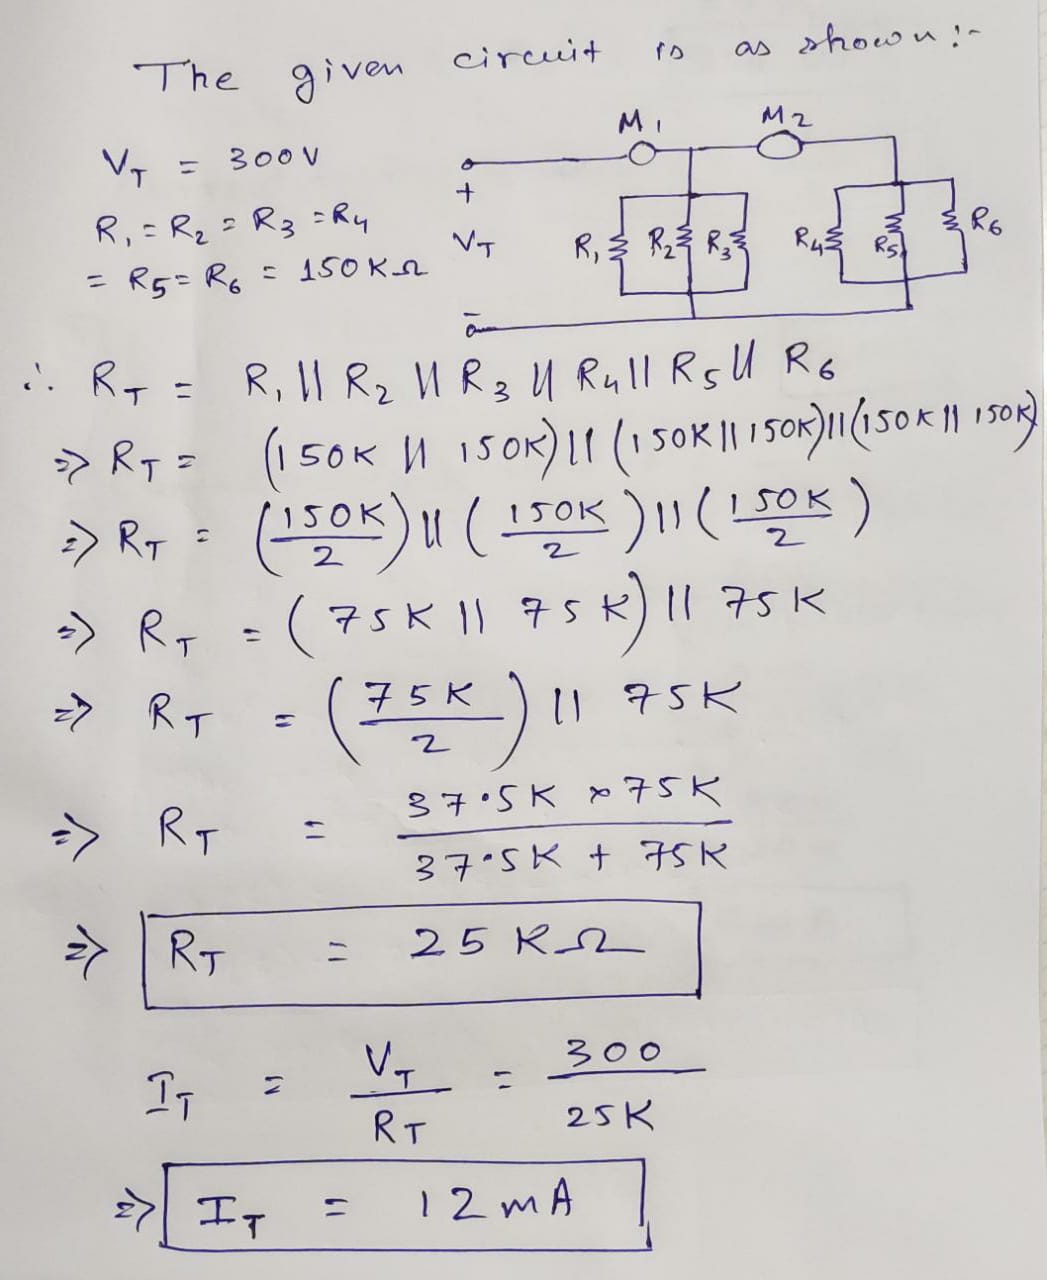 The given circuit is as shown:-
M1 M2
VT = 300V
+
R1 = R2 = R3 = R4
VT R1 R2 R3 R4 R5 R6
= R5 = R6 = 150KΩ
-
∴ RT = R1 || R2 || R3 || R4 || R5 || R6
=> RT = (150K || 150K) || (150K || 150K) || (150K || 150K)
=> RT = (150K/2) || (150K/2) || (150K/2)
=> RT = (75K || 75K) || 75K
=> RT = (75K/2) || 75K
=> RT = 37.5K × 75K / 37.5K + 75K
=> RT = 25 KΩ
IT = VT/RT = 300/25K
=> IT = 12 mA